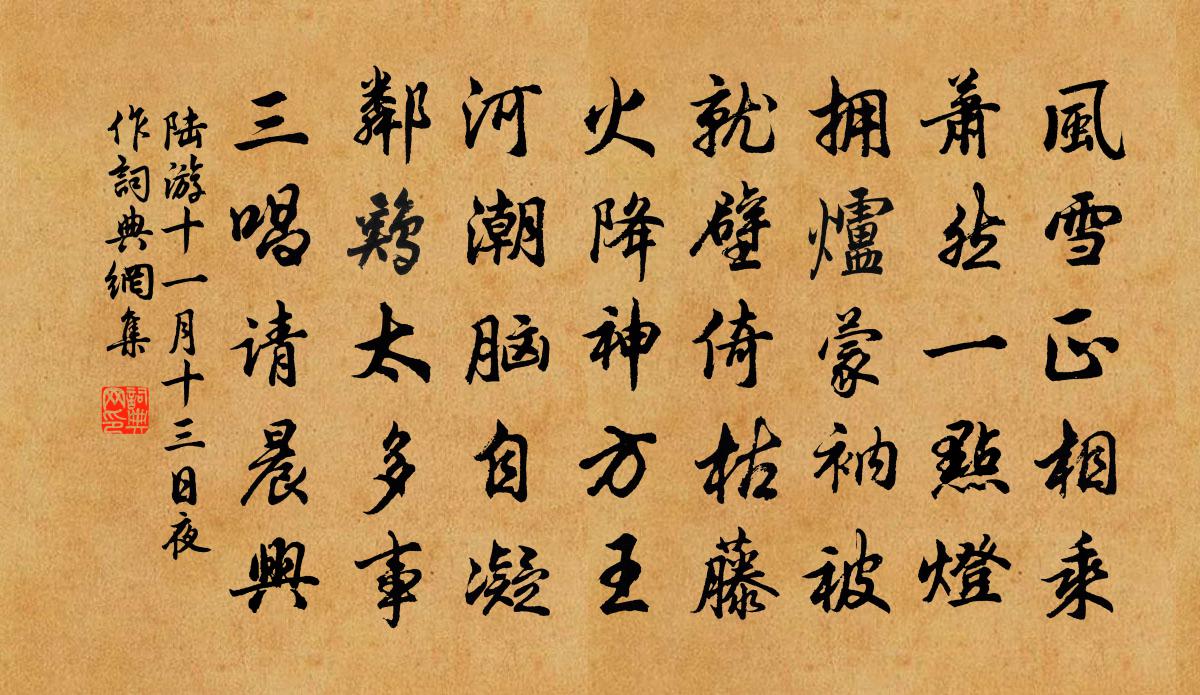 風雪正相乘
蕭然一點燈
拥爐蒙衲被
就壁倚枯藤
火降神方王
河潮脑自凝
鄰鷄太多事
三唱请晨興
陆游十一月十三日夜
作詞典網集
詞典
网印